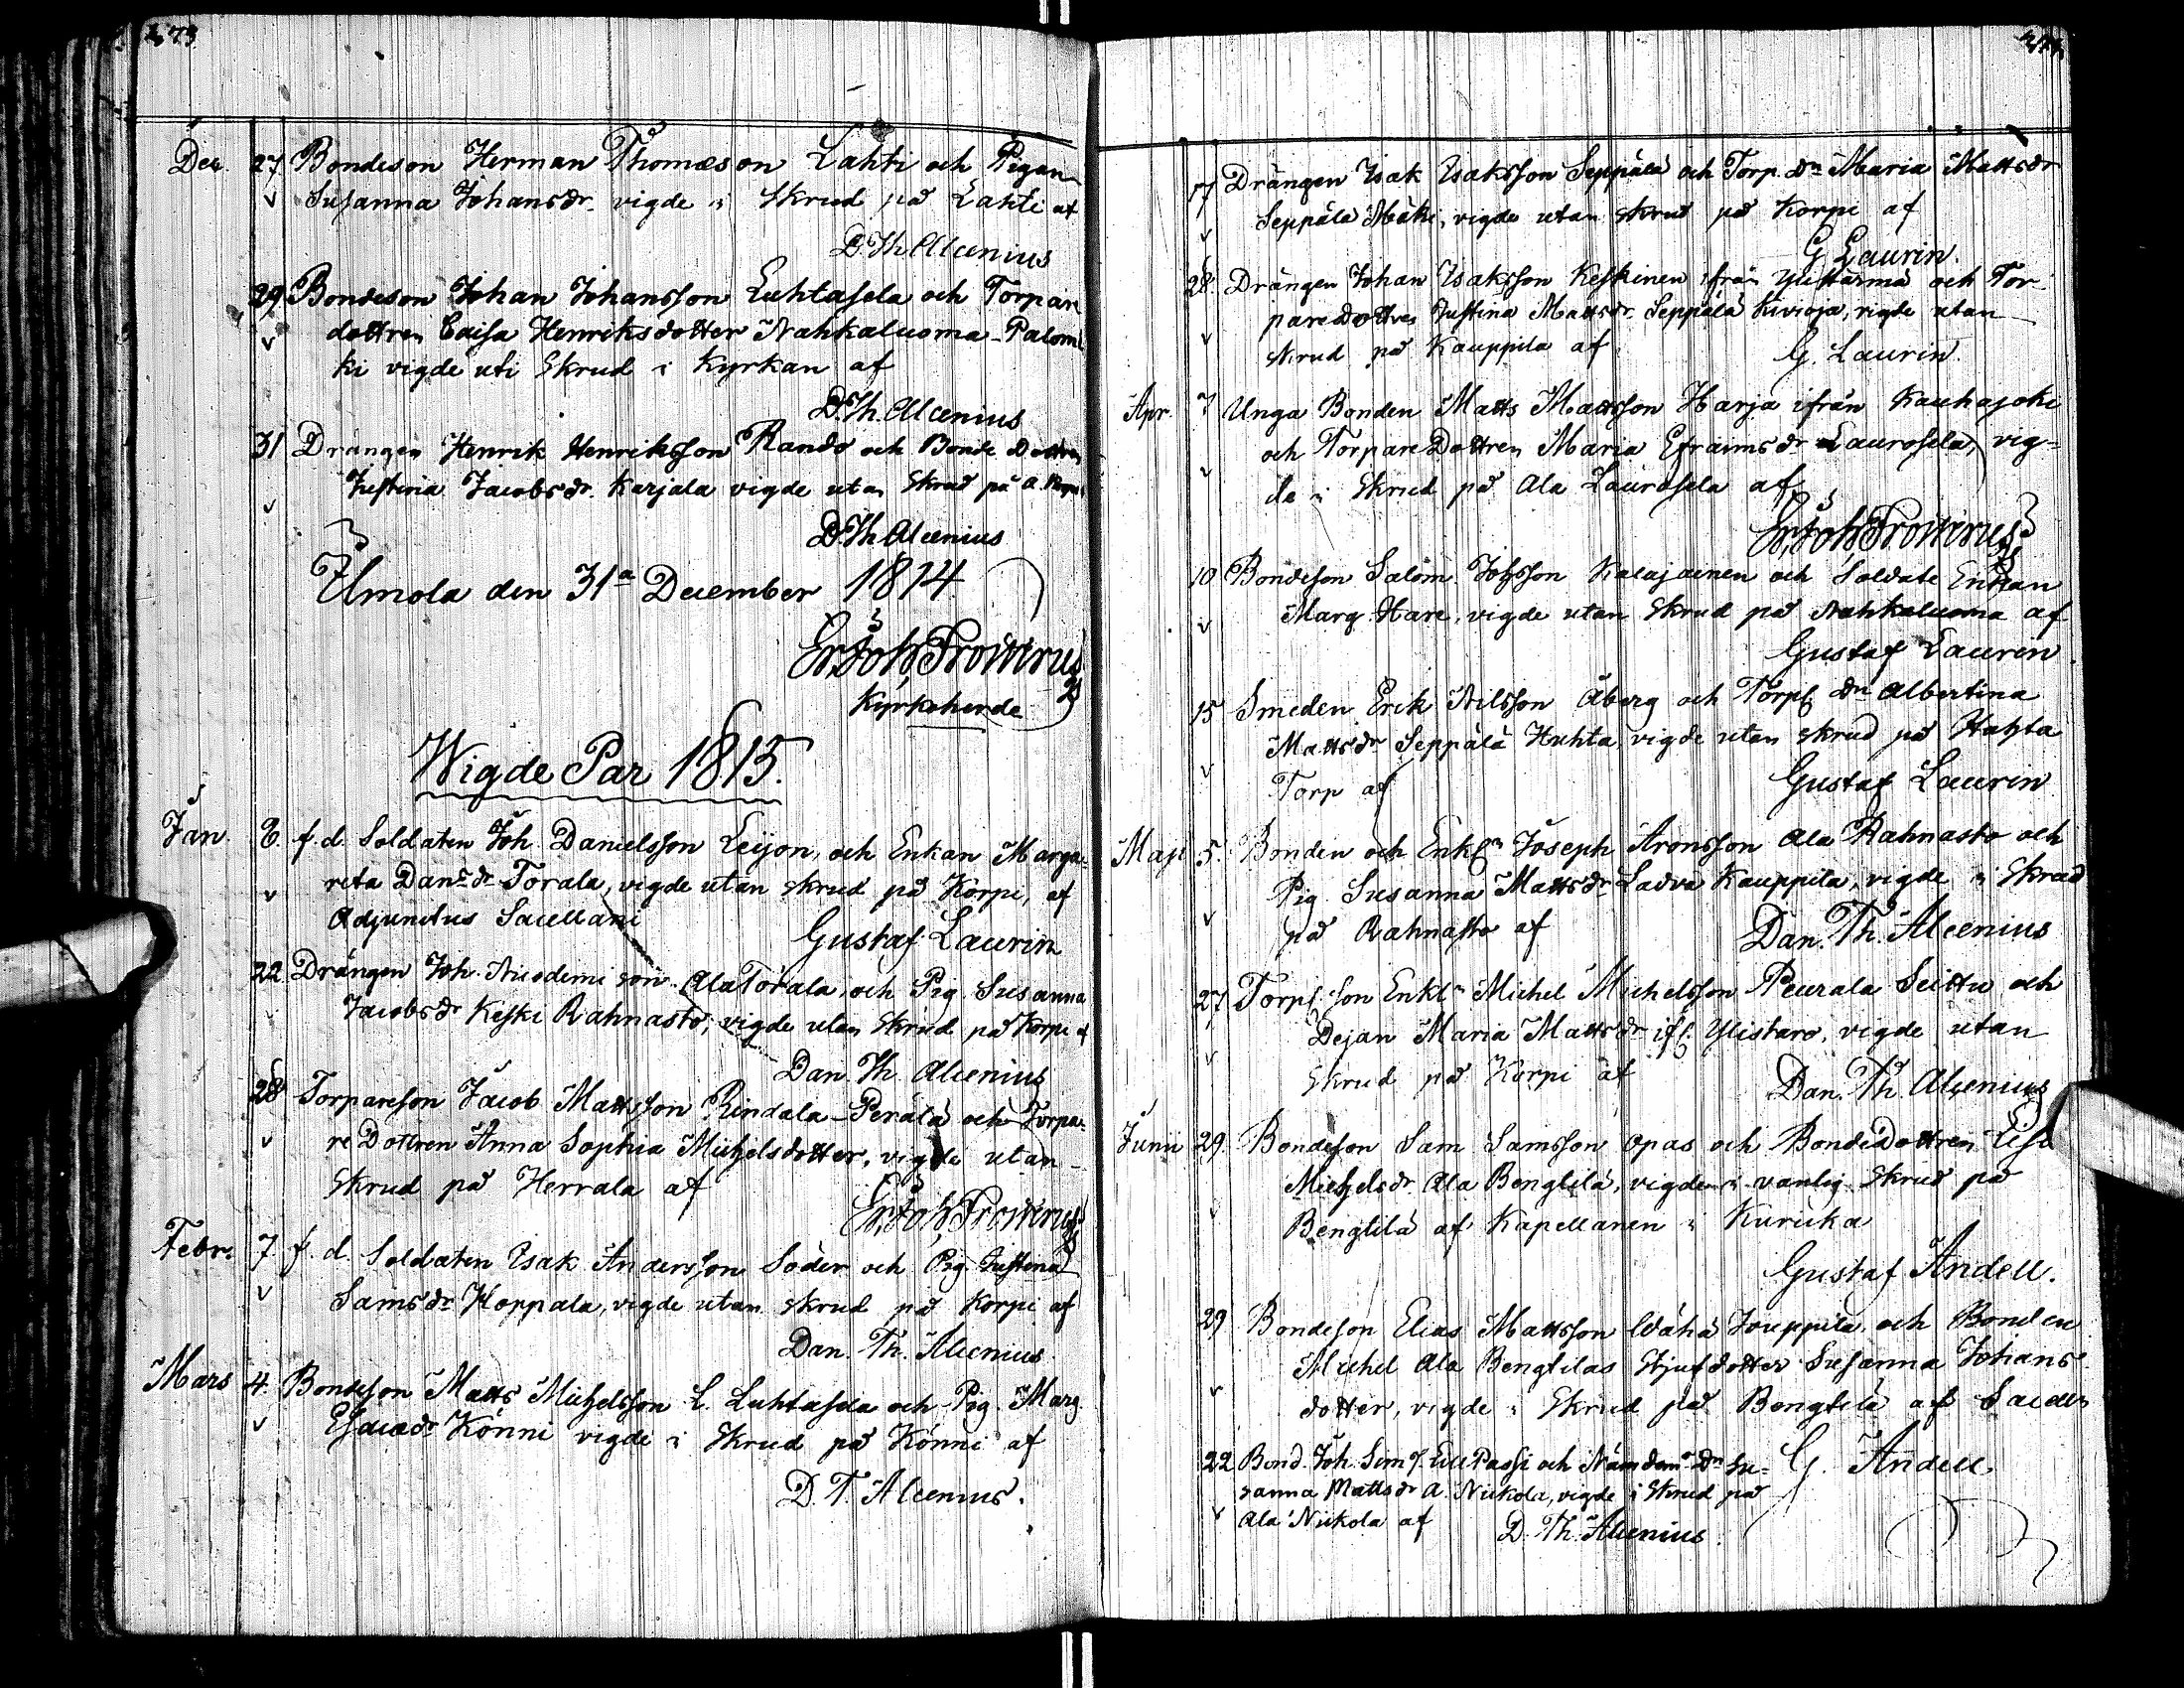 273
Dec. 27 Bondeson Herman Thomæson Lahti och Pigan
Susanna Johansdr. vigde i Skrud på Lahti af
D. Th. Alcenius
29 Bondeson Johan Johansson Luhtasela och Torpare
dottren Caisa Henriksdotter Nahkaluoma-Palomä
ki vigde uti Skrud i Kyrkan af
D. Th. Alcenius
31 Drängen Henrik Henriksson Rando och Bonde Dottren
Justina Jacobsdr. Karjala vigde utan Skrud på A.
D. Th. Alcenius
Ilmola den 31a December 1814
Er. Joh. Frosterus
Kyrkoherde
Wigde Par 1815.
Jan. 8. f. d. Soldaten Joh. Danielsson Leijon, och Enkan Marga-
reta Dans dr Torala, vigde utan skrud på Korpi, af
Adjunctus Sacellani
Gustaf Laurin
22 Drängen Joh. Nicodemi son Ala Torala, och Pig. Susanna
Jacobsdr Keski Rahnasto, vigde utan Skrud på Korpi af
Dan. Th. Alcenius
28 Torpareson Jacob Mattsson Rindala-Perälä och Torpa-
re Dottren Anna Sophia Michelsdotter, vigde utan
Skrud på Herrala af
Er. Joh. Frosterus
Febr. 7 f. d. Soldaten Isak Andersson Söder och Pig. Justina
Samsdr Hoppala, vigde utan skrud på Korpi af
Dan. Th. Alcenius
Mars 4. Bondeson Matts Michelsson L. Luhtasela och Pig. Marg.
Esaiædr Könni vigde i Skrud på Könni af
D. T. Alcenius.
274
17 Drängen Isak Isaksson Seppälä och Torp. dn Maria Mattsdr
Seppälä Mäki, vigde utan skrud på Korpi af
G. Laurin.
28. Drängen Johan Isaksson Keskinen ifrån Ylistarmå och Tor-
paredottren Justina Mattsdr. Seppälä Kivioja, vigde utan
skrud på Kauppila af
G. Laurin
Apr. 7 Unga Bonden Matts Mattsson Harja ifrån Kauhajoki
och Torpare Dottren Maria Efraimsdr Laurosela, vig-
de i Skrud på Ala Laurosela af
Er. Joh. Frosterus
10 Bondeson Salom. Johsson Kalajainen och Soldate Enkan
Marg. Hare, vigde utan Skrud på Nahkaluoma af
Gustaf Laurin
15 Smeden Erik Nilsson Åberg och Torps dn Albertina
Mattsdr Seppälä Huhta, vigde utan skrud på Huhta
Torp af
Gustaf Laurin
Maji 5. Bonden och Enkln Joseph Aronsson Ala Rahnasto och
Pig. Susanna Mattsdr Ladva Kauppila, vigde i Skrud
på Rahnasto af
Dan. Th. Alcenius
27 Torps. son Enkln Michel Michelsson Peurala Seittu och
Dejan Maria Mattsdr ifr. Ylistaro, vigde utan
skrud på Korpi af
Dan. Th. Alcenius
Junii 29. Bondeson Sam Samsson Opas och Bondedottren Lisa
Michelsdr. Ala Bengtilä, vigde i vanlig Skrud på
Bengtilä af Kapellanen i Kuricka
Gustaf Andell.
29 Bondeson Elias Mattsson Wähä Jouppila, och Bonden
Michel Ala Bengtilas Stjufdotter Susanna Johans
dotter, vigde i Skrud på Bengtilä af Sacell
G. Andell
22 Bond. Joh. Sims. Passi och Nämdem. dn Su-
sanna Mattsdr A. Nickola, vigde i Skrud på
Ala Nickola af D. Th. Alcenius.